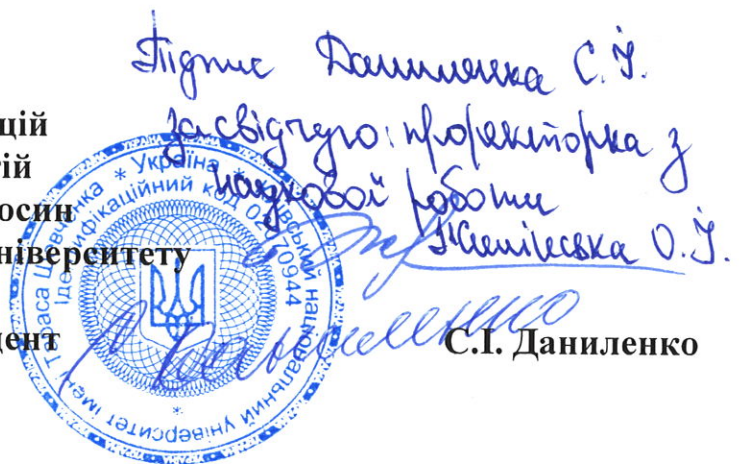 Підпис Даниленка С.І.
засвідчую: проректорка з
наукової роботи
О.І.
цій
гій
осин
ніверситету
цент
С.І. Даниленко
* Україна * Київський національний університет імені Тараса Шевченка
Ідентифікаційний код 02070944